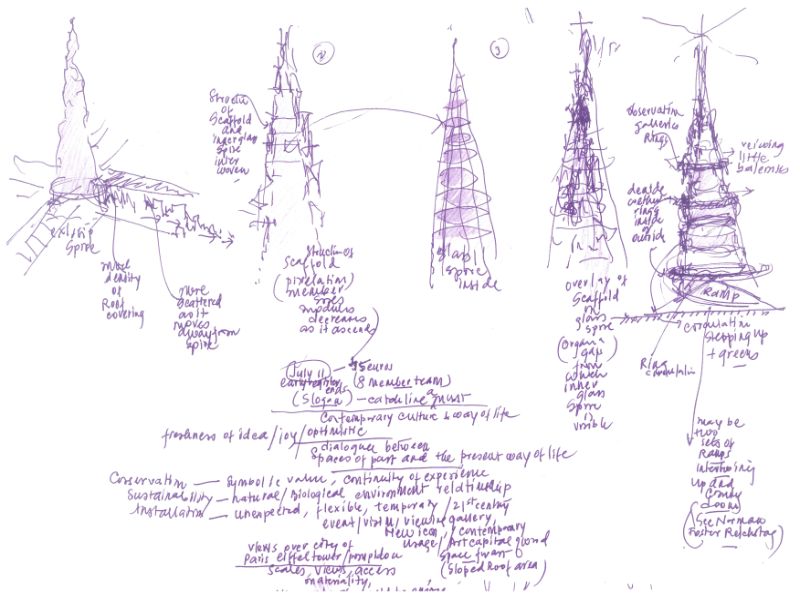 2
3
Structure
of
Scaffold
and
inner glass
spire
inter
woven
existing
Spire
more
density
of
Roof
covering
more
scattered
as it
moves
away from
spire
Structure of
Scaffold
(pixelation)
member
sizes
modules
decreases
as it ascends
glass
spire
inside
overlay of
Scaffold
on
glass
spire
(organic
gap
from
which
inner
glass
spire
is
visible
observation
galleries
Rings
decide
whether
rings
inside
or
outside
viewing
little
balconies
Ramp
circulation
stepping up
+ greens
Ring
circulation
may be
two
sets of
Ramps
intertwining
up and
coming
down
(See Norman
Foster Reichstag)
July 11 — 35 euros
early register ends (8 member team)
(Slogan) — catchline a must
Contemporary culture & way of life
freshness of idea/joy/optimistic
dialogue between
spaces of past and the present way of life
Conservation — symbolic value, continuity of experience
Sustainability — natural/Biological environment relationship
Installation — unexpected, flexible, temporary / 21st century
event/visitor/viewing gallery,
New icon / contemporary
usage / Art capital ground
views over city of
Paris Eiffel tower/pompidou
space
(Sloped Roof area)
scales, views, access
materiality,